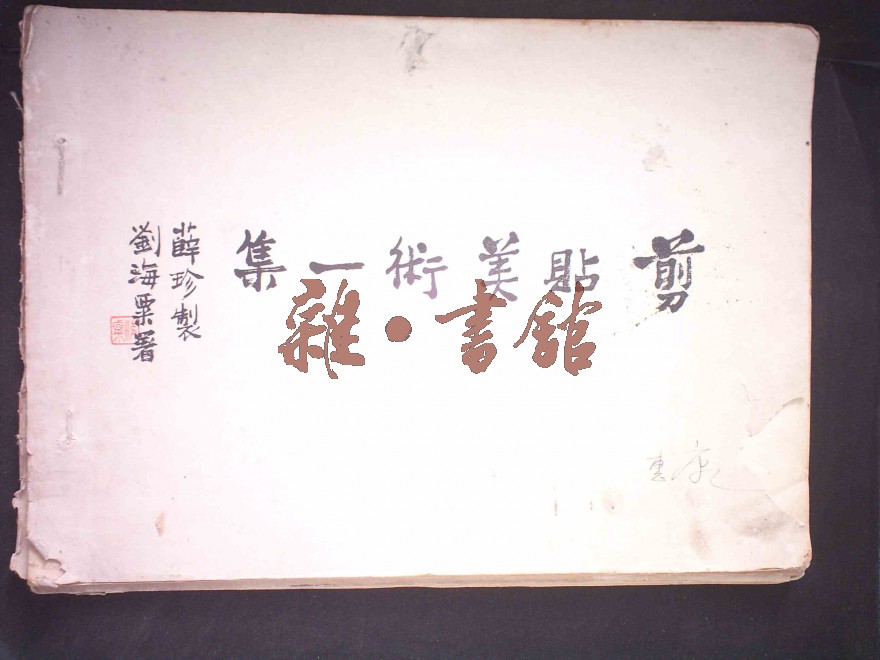 剪貼美術一集
薛珍製
劉海粟署
雜•書館